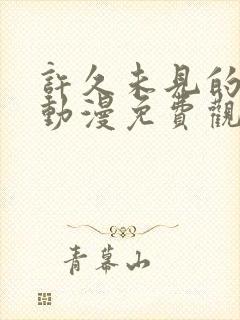 許久未見的
動漫免費觀
青幕山